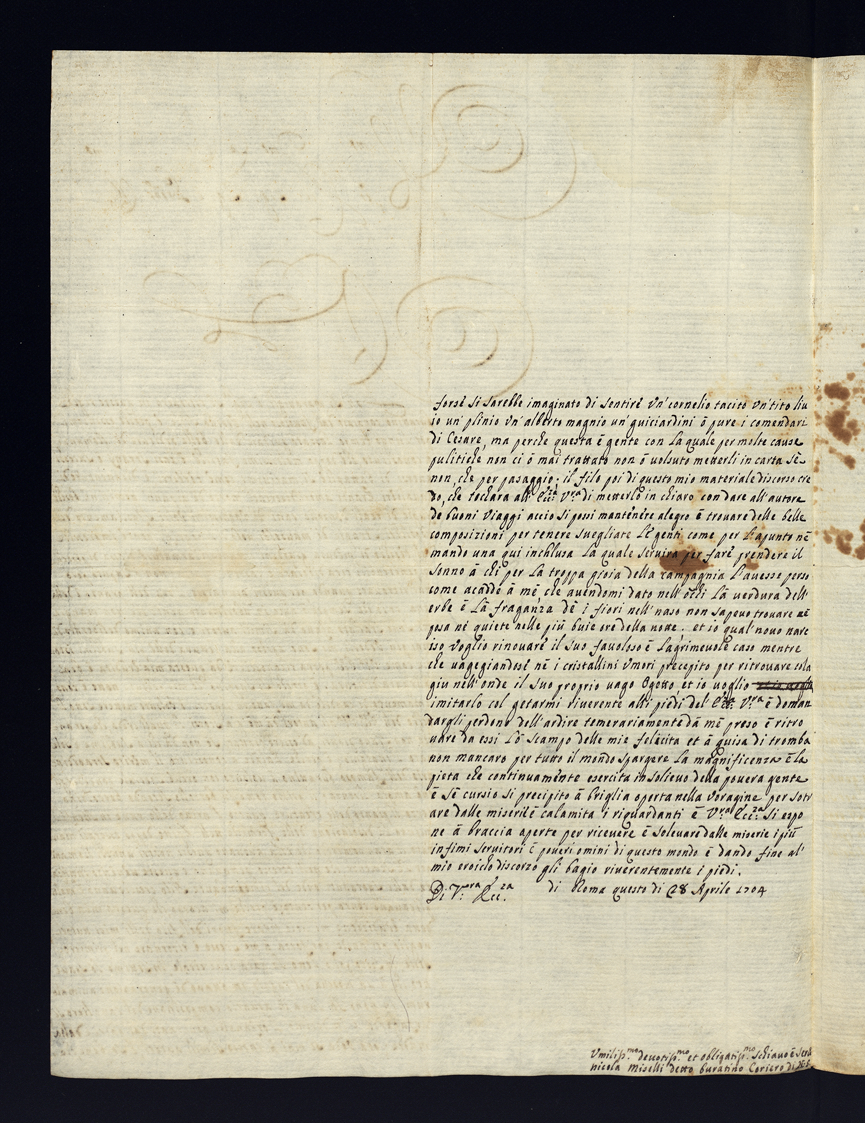 forse si sarebbe imaginato di sentire vn' cornelio tacito vn' tito liu
io un' plinio vn' alberto magnio un' guiciardini ō pure i comendari
di Cesare, ma perche questa ē gente con la quale per molte cause
pulitiche non ci ō mai trattato non ō voluuto metterli in carta sē
non, che per pasaggio; il filo poi di questo mio materiale discorso cre
do, che tochara all' Ecc.za V.ra di metterlo in chiaro, con dare all' autore
de buoni viaggi accio si possi mantenēre alegro ē trouare delle belle
composizioni per tenere suegliate lē genti come per l'apunto nē
mando una qui inchlusa la quale seruira per farē prendere il
sonno ā chi per la troppa gioia della campagnia l'auesse perso
come acaddē ā mē che auendomi dato nell' ochi la verdura dell'
erbe ē la fraganza dē i fiori nell' naso non sapeuo trouare nē
posa nē quiete nelle piu buie ore della notte. et io qual' nouo narc
iso voglio rinouarē il suo fauoloso ē lagrimeuole caso mentre
che uagegiandosi nē i cristallini vmori precepito per ritrouare cola
giu nell' onde il suo proprio uago ogetto, et io voglio
imitarlo col getarmi riuerente alli piedi del' Ecc.za V.ra ē doman
dargli perdono dell' ardire temerariamente dā mē preso ē ritro
uare da essi lō scampo delle mie felicita et ā guisa di tromba
non mancaro per tutto il mondo spargere la magnificenza ē la
pieta che continuamente esercita in solieuo della pouera gente
ē sē cursio si precipito ā briglia operta nella voragine per sotr
are dalle miserie ē calamita i riguardanti ē V.ra Ecc.za si espo
ne ā braccia aperte per riceuere ē soleuare dalle miserie i piu
infimi seruitori ē poueri omini di questo mondo ē dando fine al'
mio eroicho discorzo gli bagio riuerentemente i piedi.
Di V.ra Ecc.za di Roma questo di 28 Aprile 1704
Vmilis.mo deuotis.mo et obligatis.mo schiauo ē
nicola Miselli detto buratino Coriero di